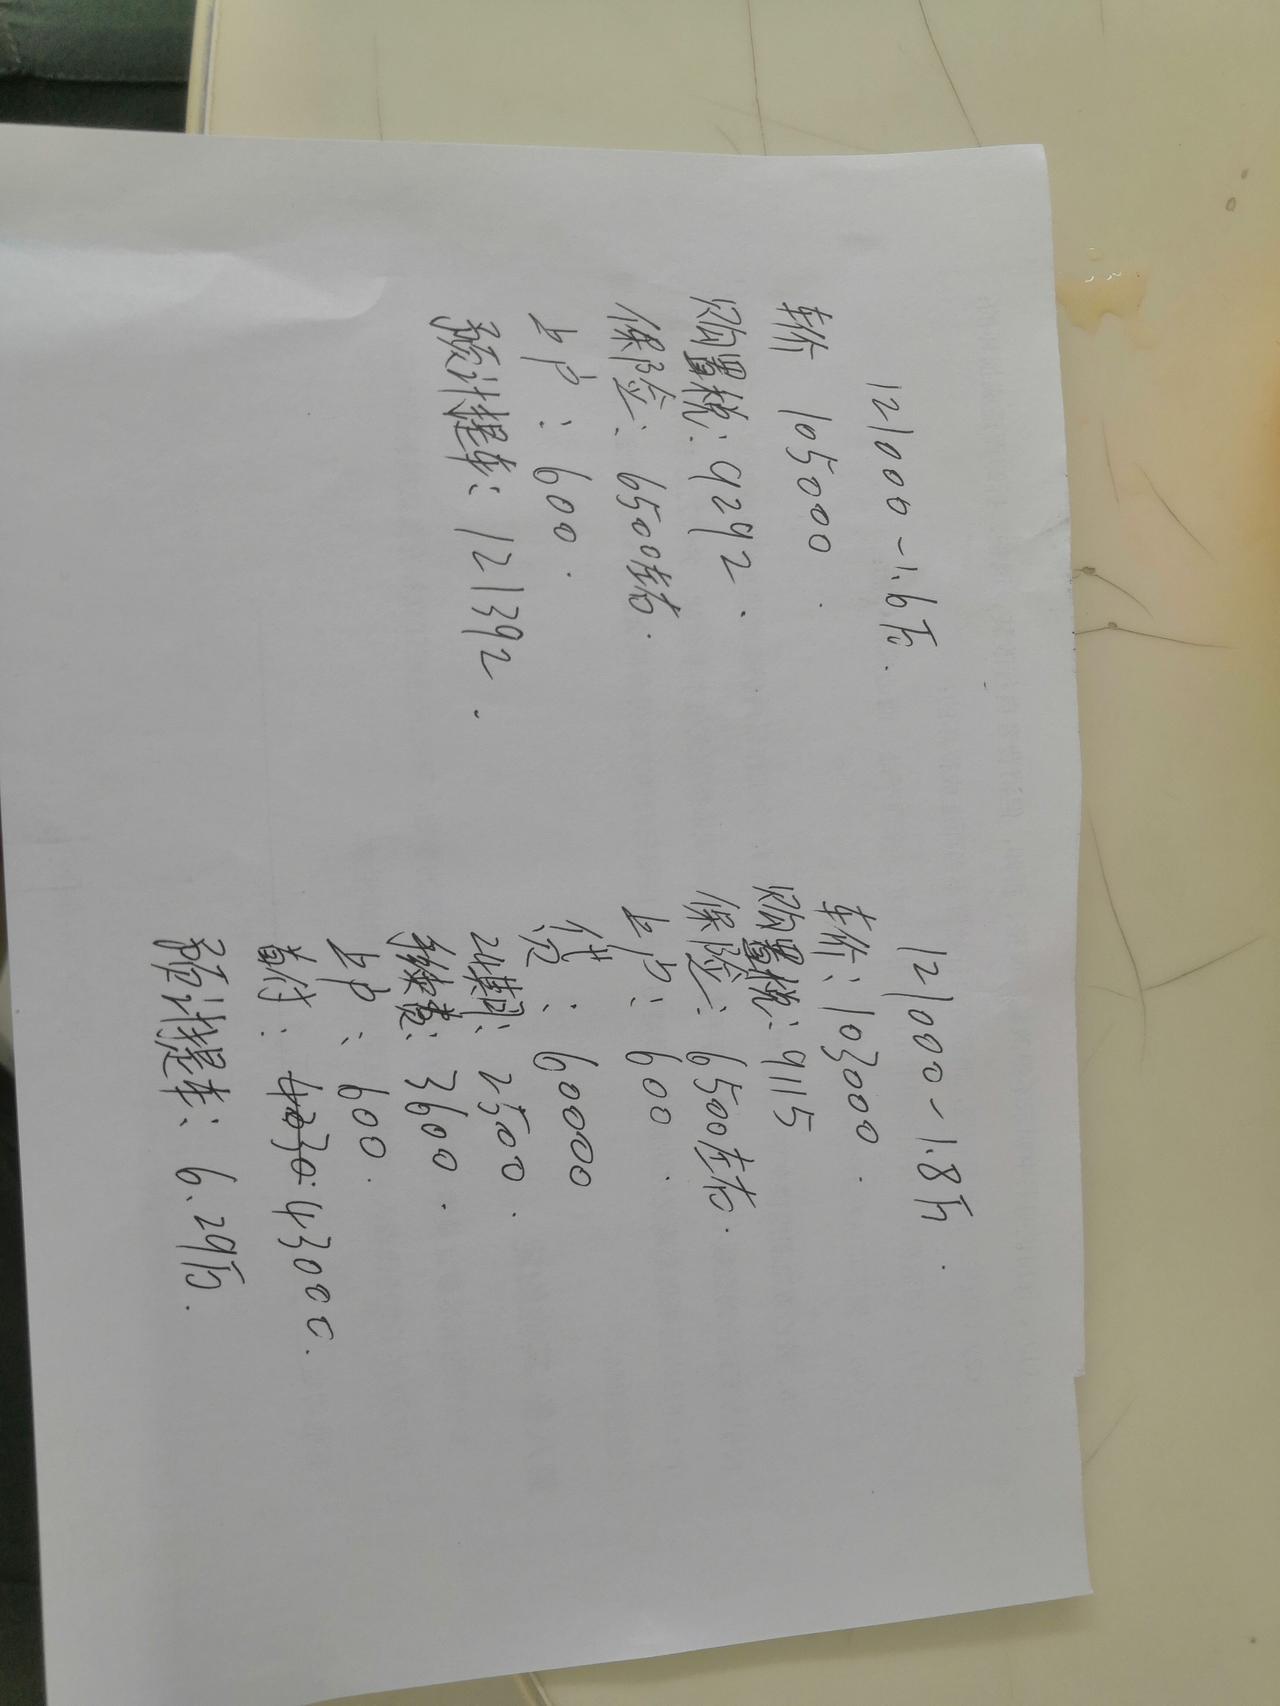 121000-1.6万.
车价 105000.
购置税: 9292.
保险: 6500左右.
上户: 600.
预计提车: 121392.
121000-1.8万.
车价: 103000.
购置税: 9115
保险: 6500左右.
上户: 600.
贷: 60000
24期: 2500.
手续费: 3600.
上户: 600.
首付: 43000.
预计提车: 6.29万.